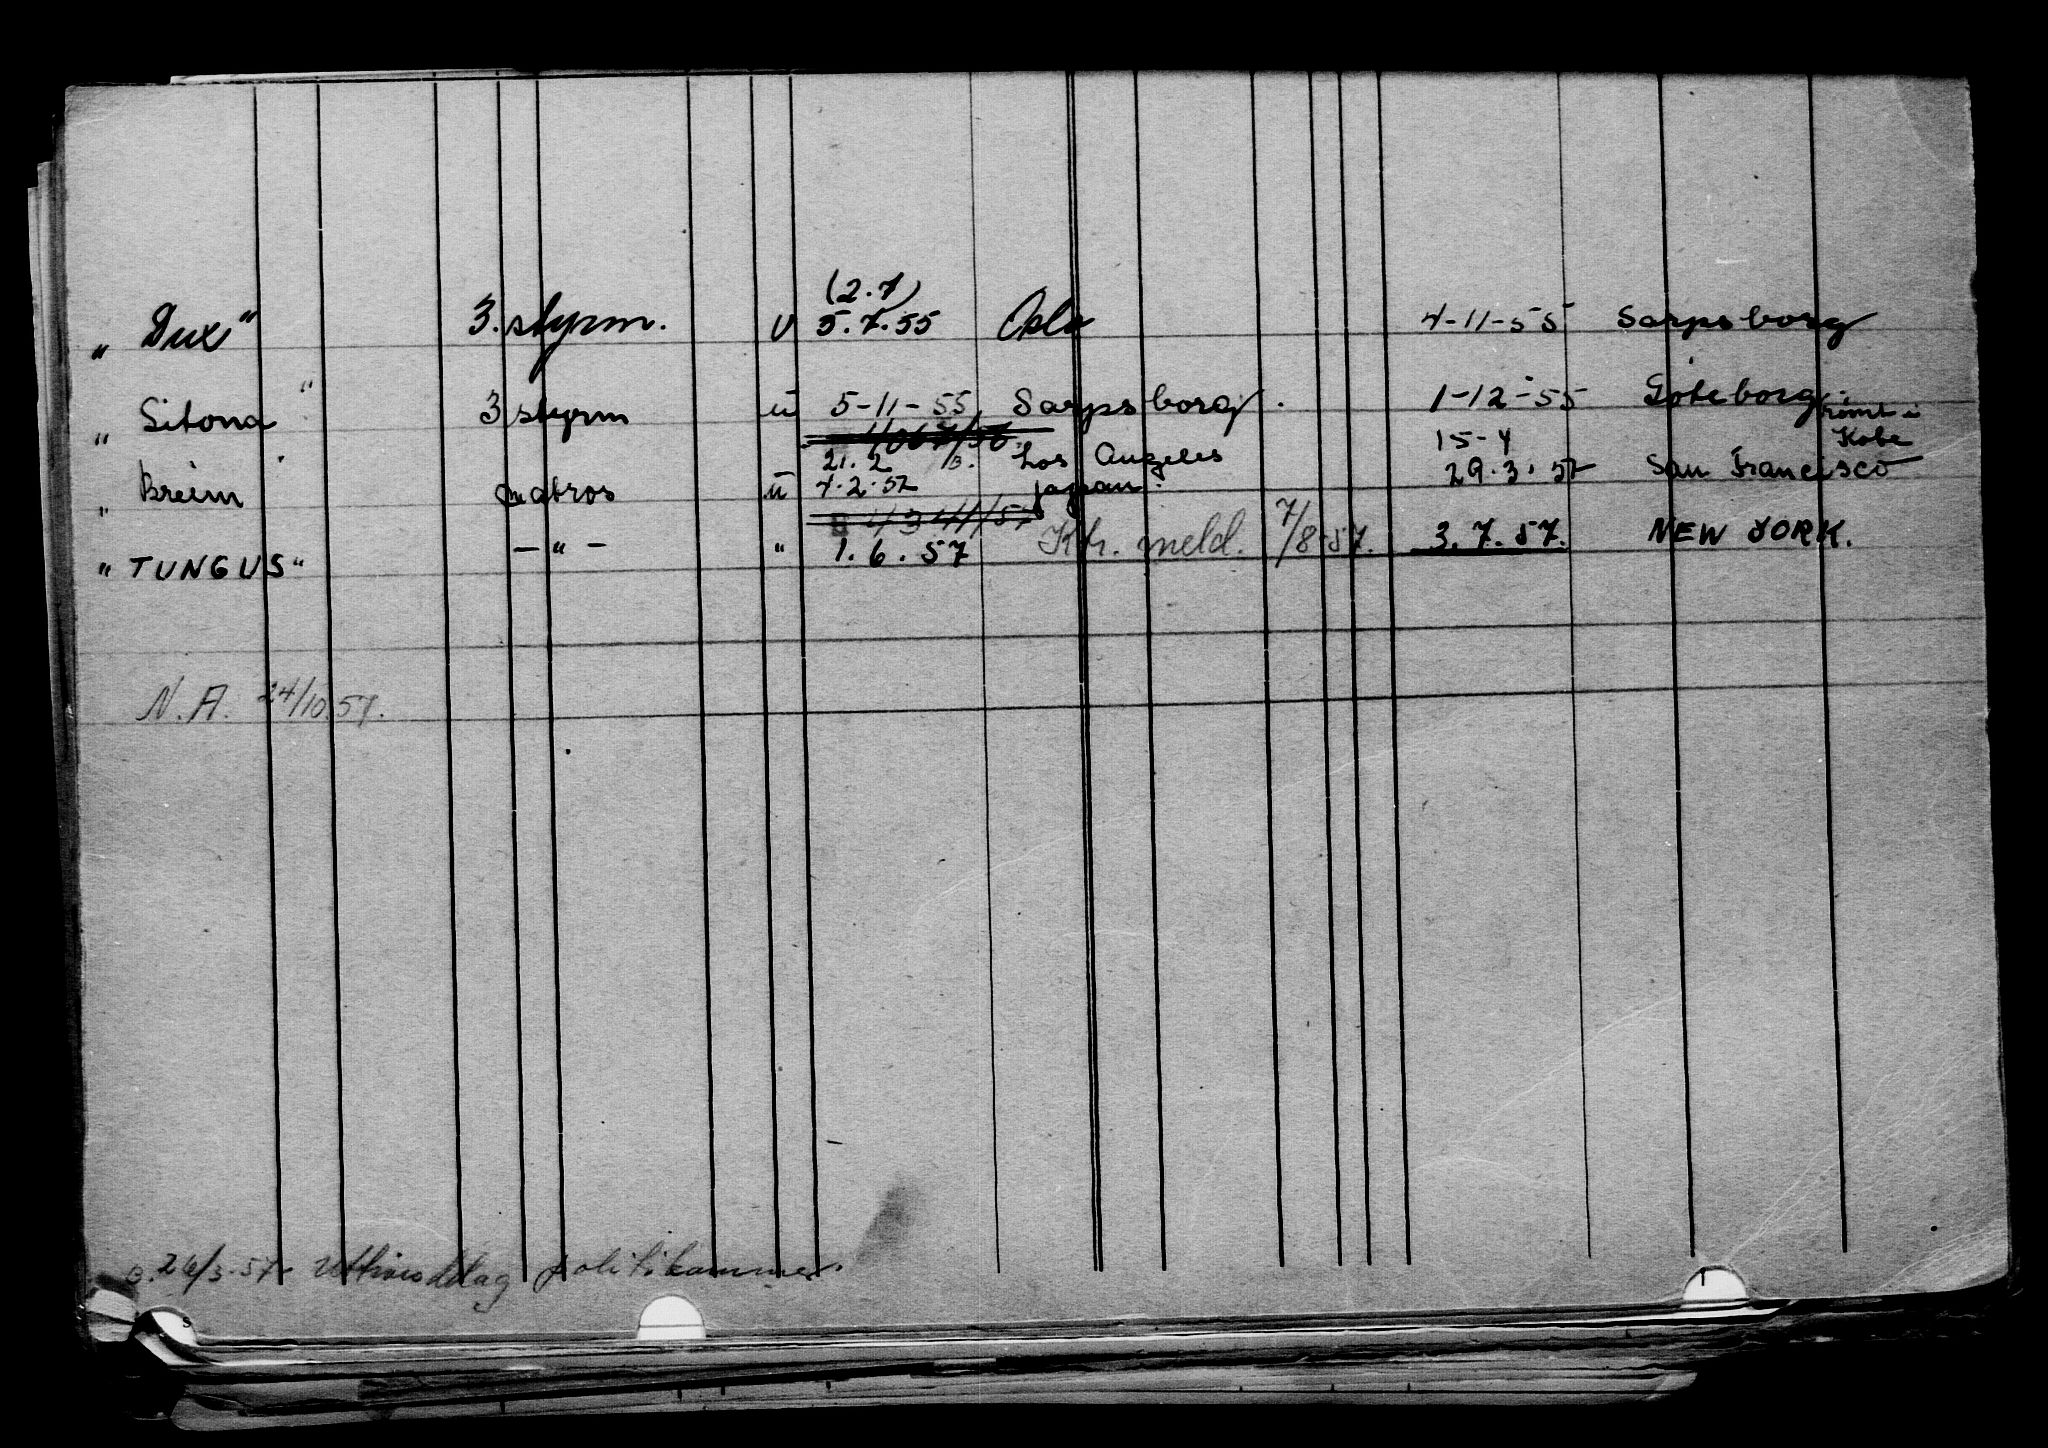 (2.7)
„ Dux " 3. styrm. u 5.7.55 Oslo 4-11-55 Sarpsborg
„ Sitona " 3 styrm u 5-11-55 Sarpsborg. 1-12-55 Göteborg.
21.2 Los Angeles 15-4 rømt i Kobe
„ Breim " matros u 4.2.57 Japan. 29.3.57 San Francisco
" TUNGUS " — " — " 1.6.57 Ktr. meld. 7/8-57. 3.7.57. NEW YORK.
N.A. 24/10.57.
26/3-57 politikammer.